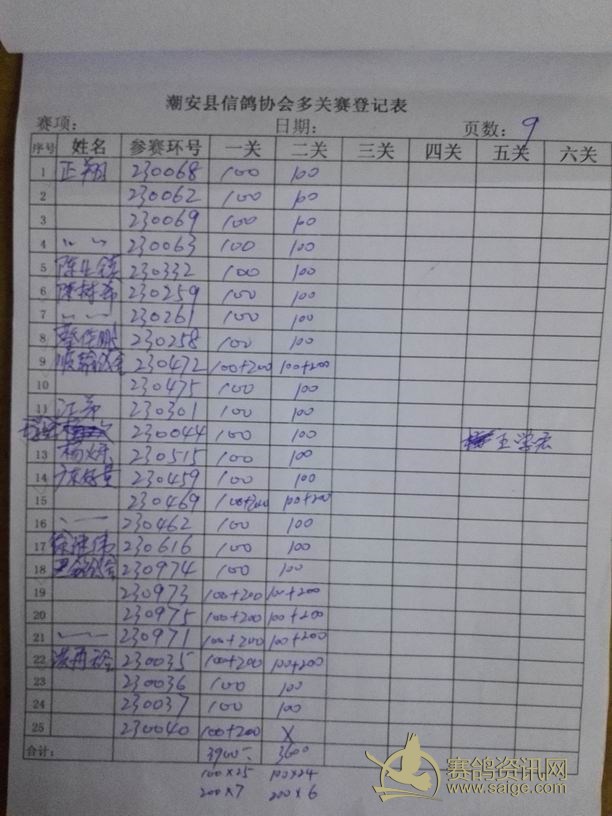 潮安县信鸽协会多关赛登记表
赛项: 日期: 页数: 9
序号 姓名 参赛环号 一关 二关 三关 四关 五关 六关
1 正翔 230068 100 100
2 230062 100 100
3 230069 100 100
4 〃 〃 230063 100 100
5 230332 100 100
6 230259 100 100
7 230261 100 100
8 230258 100 100
9 230472 100+200 100+200
10 230475 100 100
11 230301 100 100
230044 100 100 王学宏
13 230515 100 100
14 230459 100 100
15 230469 100+200 100+200
16 230462 100 100
17 230616 100 100
18 230974 100 100
19 230973 100+200 100+200
20 230975 100+200 100+200
21 230971 100+200 100+200
22 230035 100+200 100+200
23 230036 100 100
24 230037 100 100
25 230040 100+200 X
合计: 3900 3600
100×25 100×24
200×7 200×6
赛鸽资讯网
www.saige.com